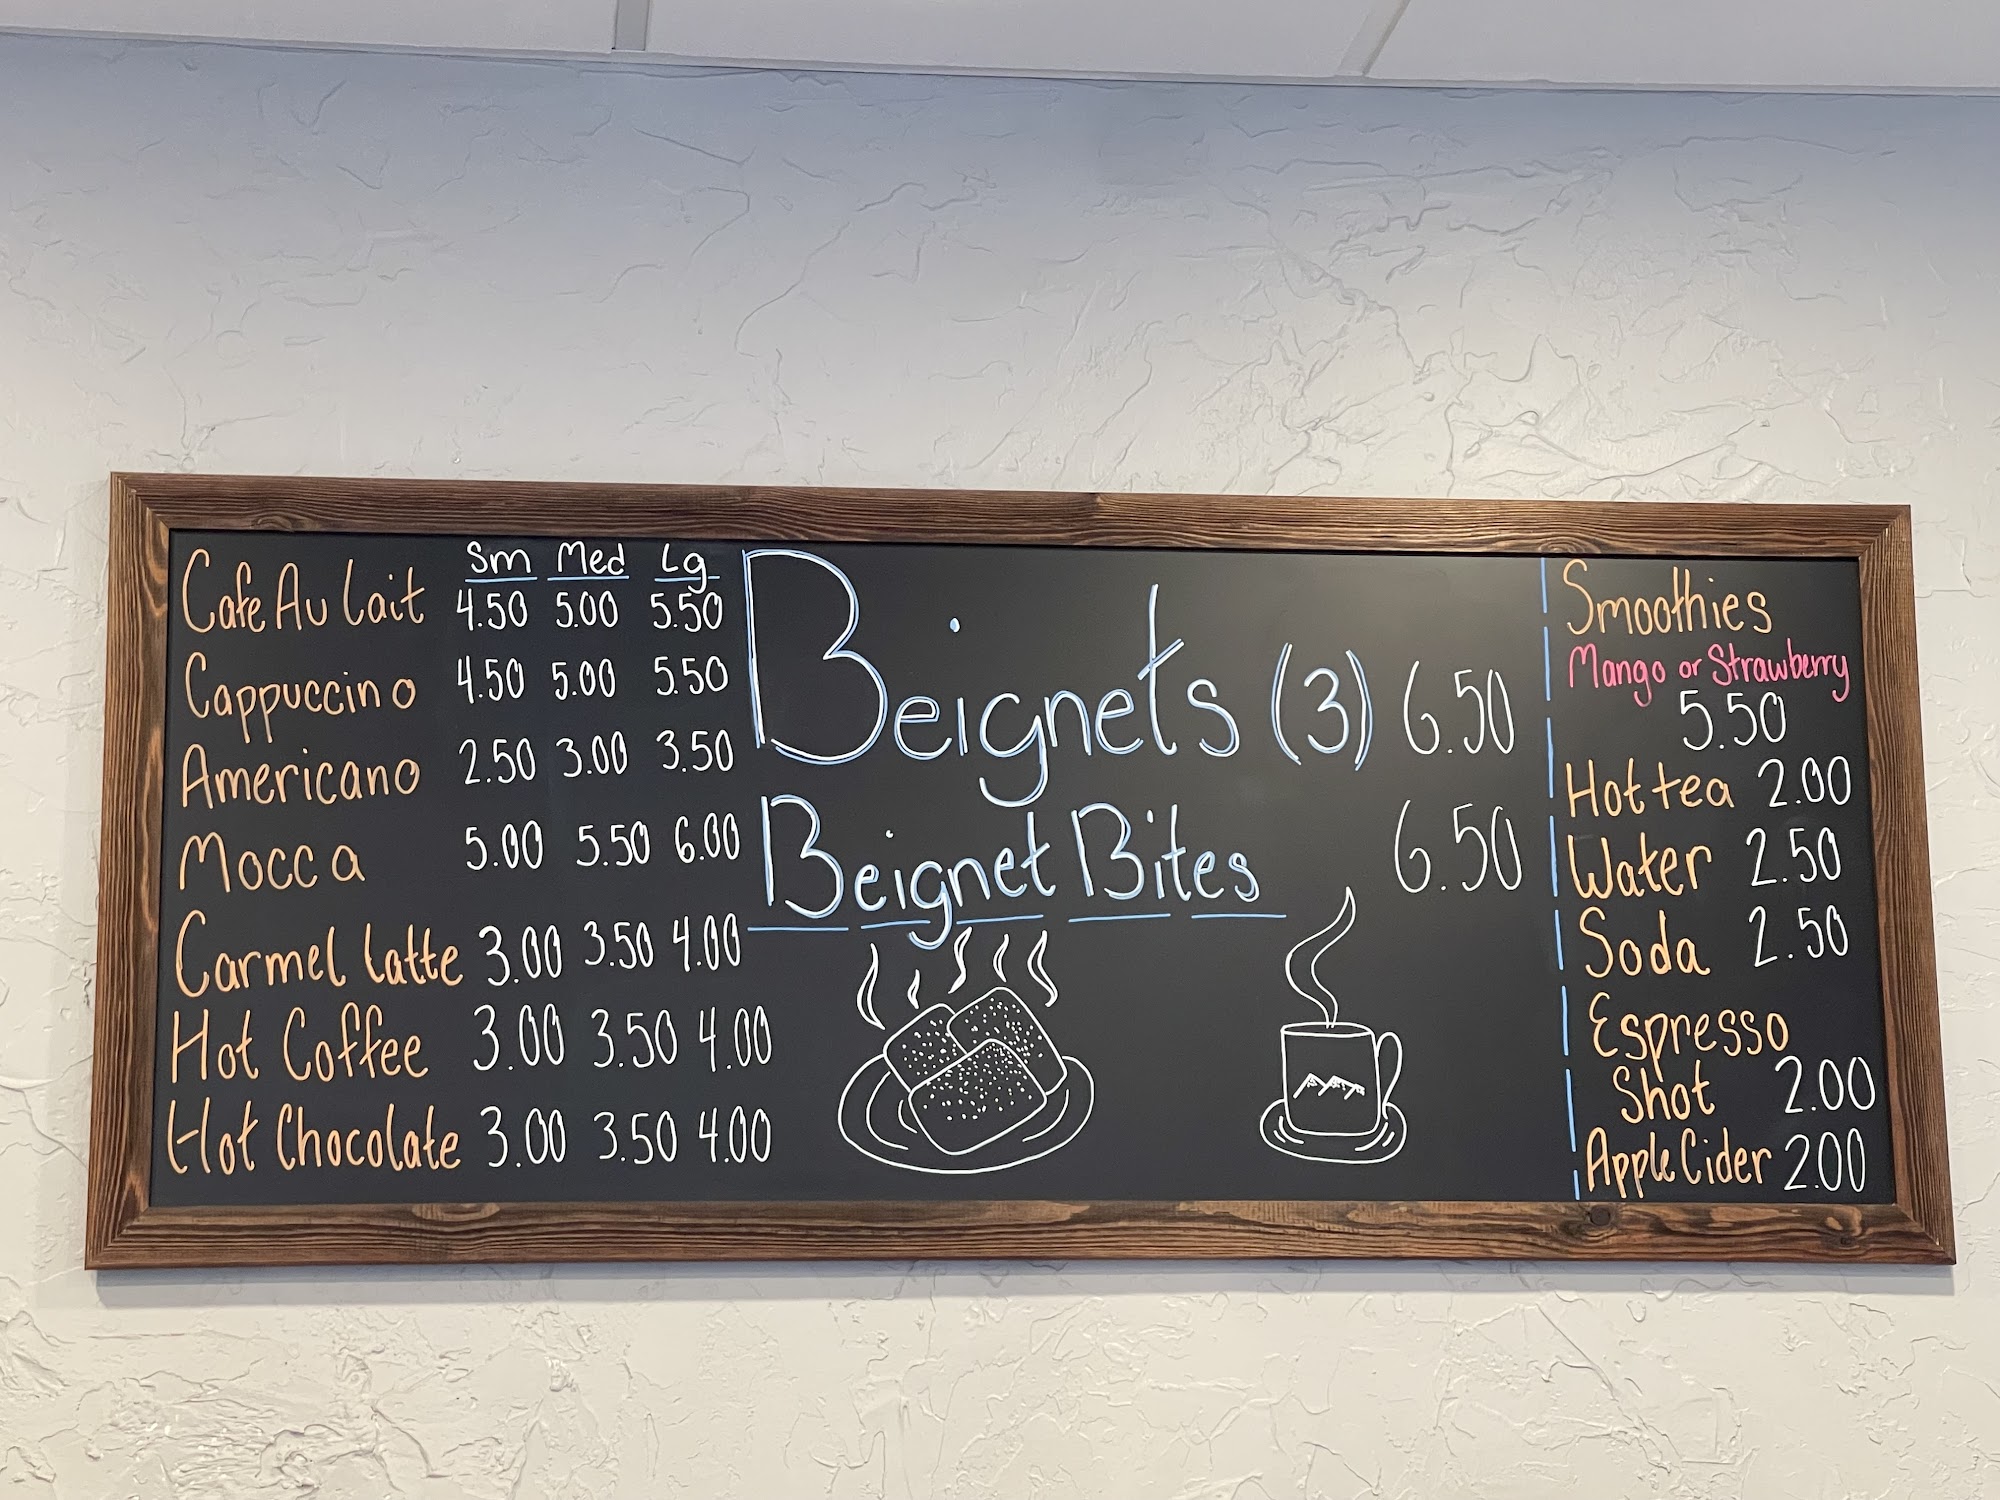 Sm Med Lg
Cafe Au Lait 4.50 5.00 5.50
Cappuccino 4.50 5.00 5.50
Americano 2.50 3.00 3.50
Mocca 5.00 5.50 6.00
Carmel Latte 3.00 3.50 4.00
Hot Coffee 3.00 3.50 4.00
Hot Chocolate 3.00 3.50 4.00
Beignets (3) 6.50
Beignet Bites 6.50
Smoothies
Mango or Strawberry
5.50
Hot tea 2.00
Water 2.50
Soda 2.50
Espresso
Shot 2.00
Apple Cider 2.00